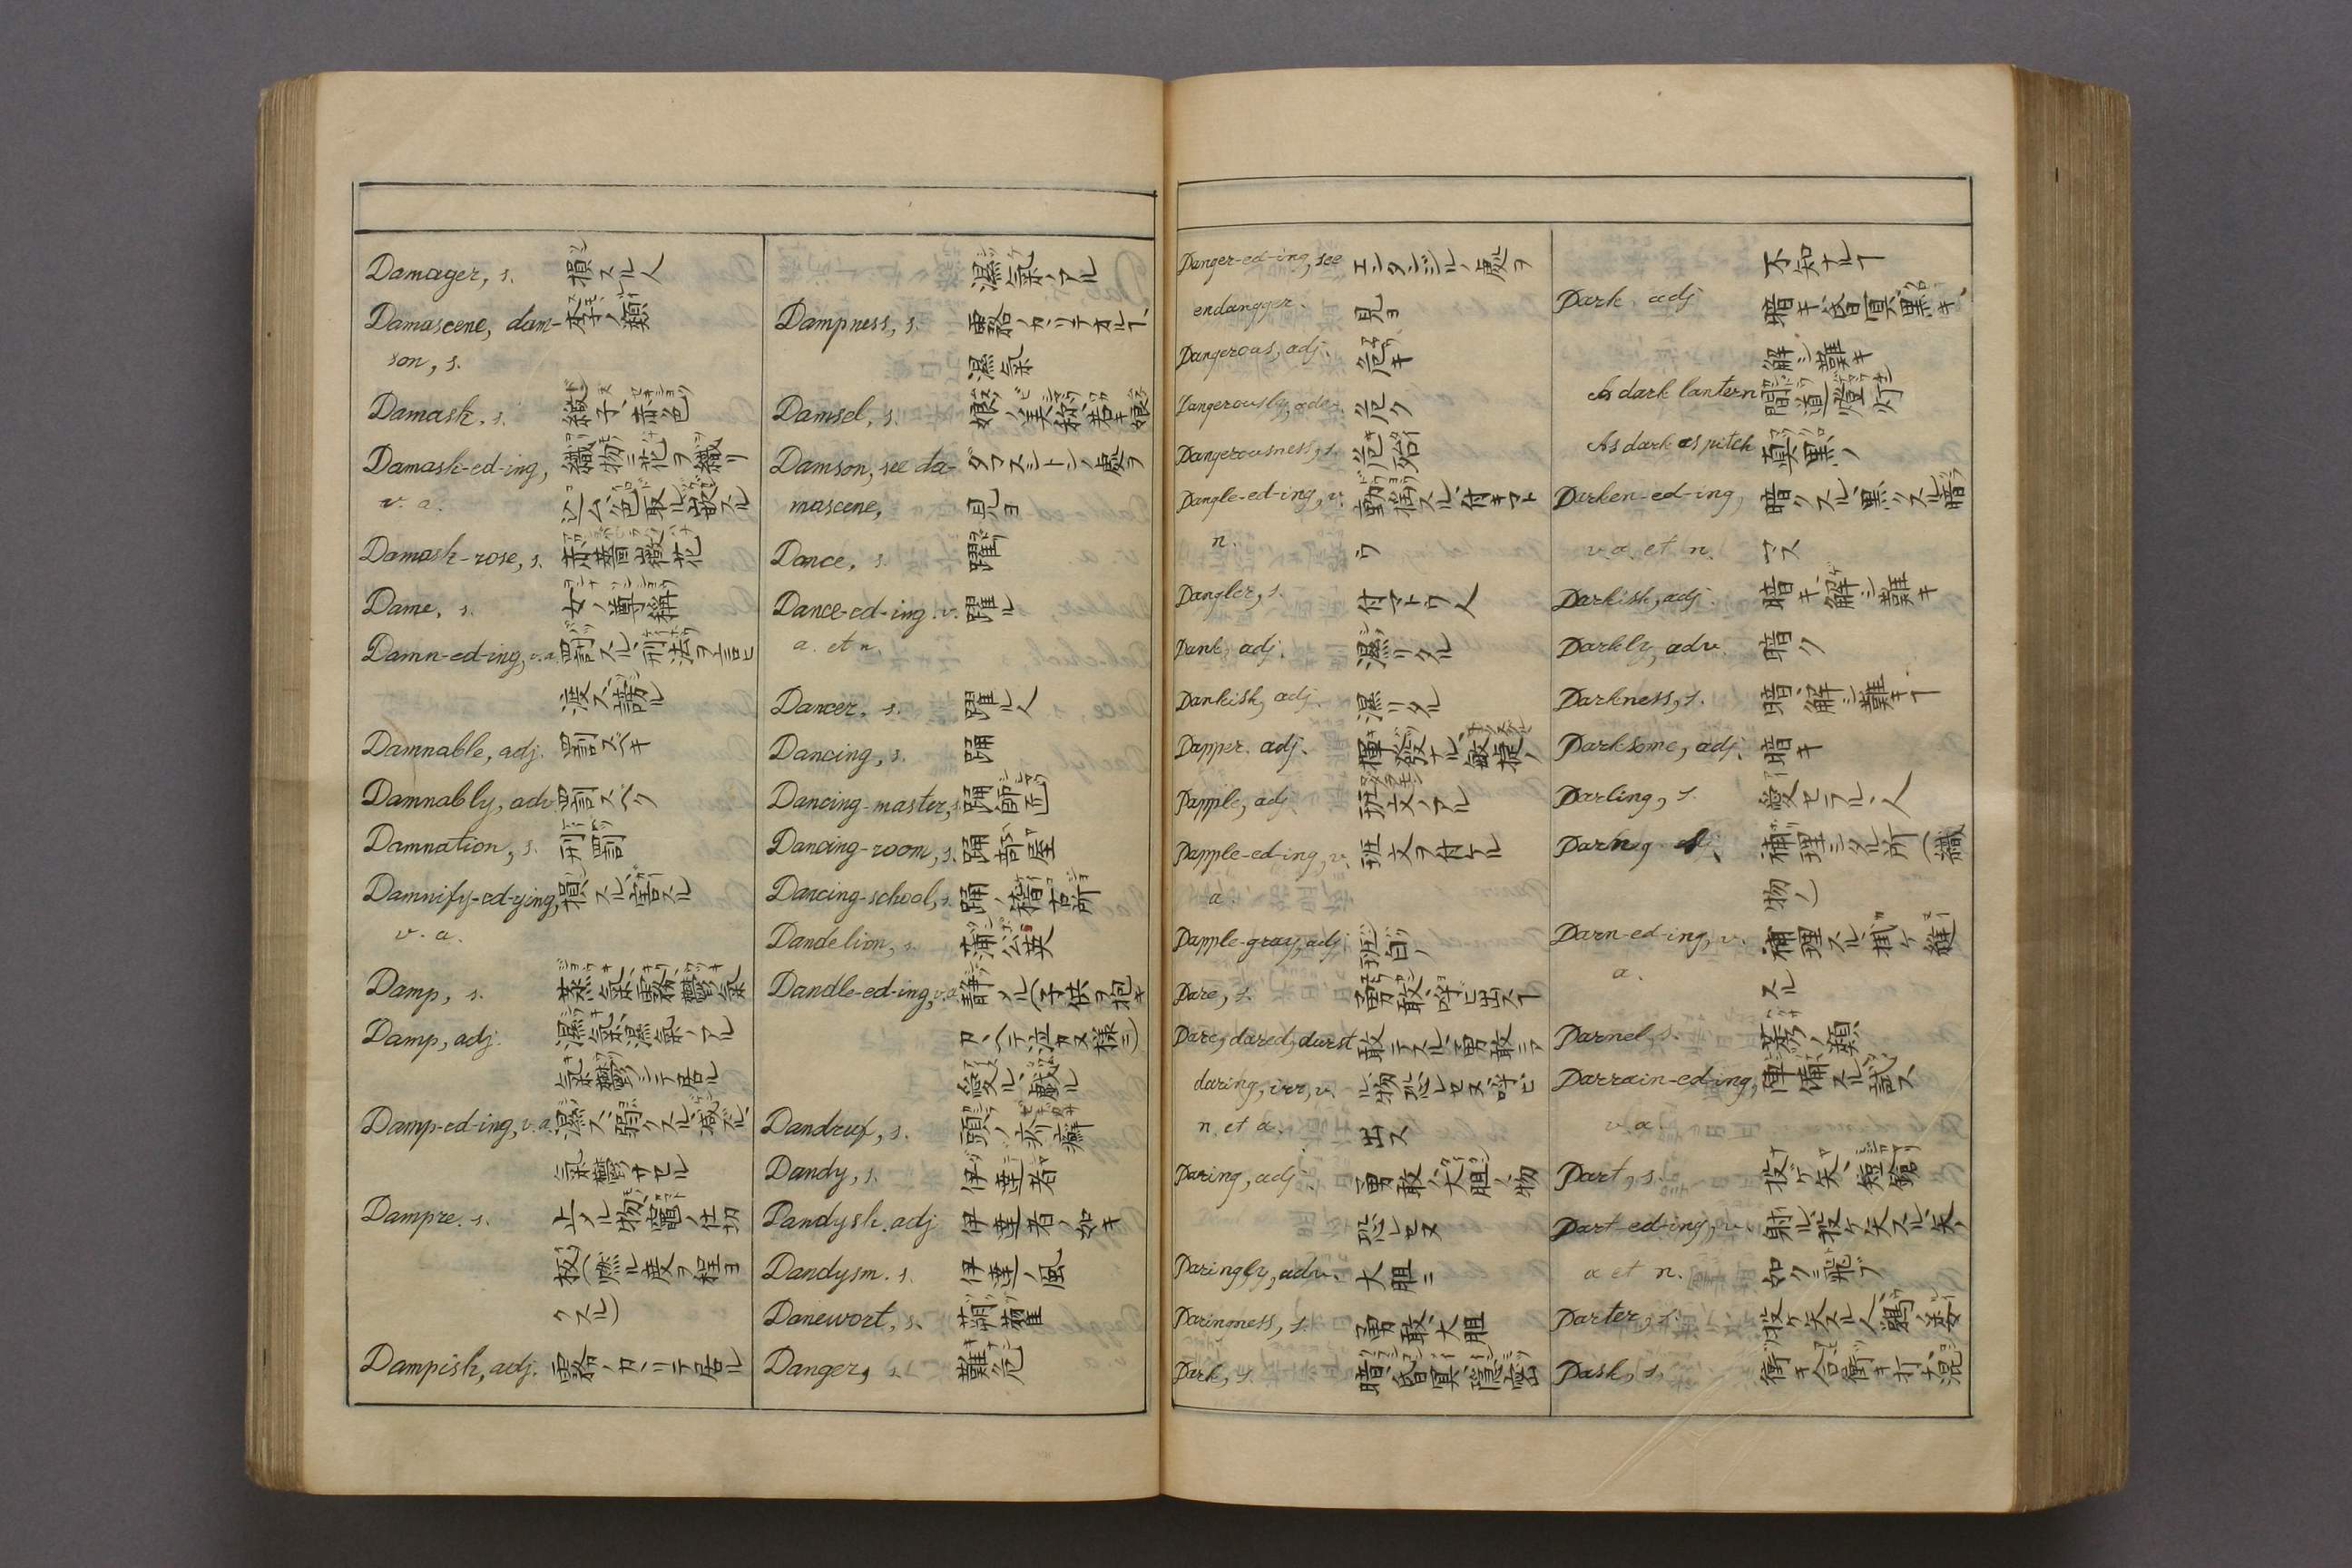 Damager, s. 損スル人
Damascene, dam- 李ノ類
son, s.
Damask, s. 緞子、赤色
Damask-ed-ing, 織物ニ花ヲ織リ
v. a. 込ム、色取ル、散スル
Damask-rose, s. 赤薔薇花
Dame, s. 女ノ尊称
Damn-ed-ing, v. a. 罰スル、刑法ヲ言ヒ
渡ス、謗ル
Damnable, adj. 罰スベキ
Damnably, adv. 罰スベク
Damnation, s. 刑罰
Damnify-ed-ying, 損スル、害スル
v. a.
Damp, s. 蒸氣、霧、鬱氣
Damp, adj. 濕氣、濕氣ノアル
氣鬱シテ居ル
Damp-ed-ing, v. a. 濕ス、弱クスル、減ズル、
氣鬱サセル
Dampre. s. 止ノル物、竈ノ仕切
板(燃ル度ヲ程ヨ
クスル)
Dampish, adj. 霧ノカヽリテ居ル
濕氣ノアル
Dampness, s. 霧ノカヽリテオルヿ、
濕氣
Damsel, s. 娘ノ美称、若キ娘
Damson, see da- ダマスシーンノ處ヲ
mascene, 見ヨ
Dance, s. 躍
Dance-ed-ing. v. 躍ル
a. et n.
Dancer, s. 躍ル人
Dancing, s. 踊
Dancing-master, s. 踊師匠
Dancing-room, s. 踊部屋
Dancing-school, s. 踊ノ稽古所
Dandelion, s. 蒲公英
Dandle-ed-ing, v. a. 静ノル(子供ヲ抱キ
カヽヘテ泣カヌ様ニ)
愛スル、戯ル
Dandruf, s. 頭ノ疥癬
Dandy, s. 伊達者
Dandysh. adj 伊達者ノ如キ
Dandysm. s. 伊達ノ風
Danewort, s. 蒴藋
Danger, s. 難、危
Danger-ed-ing, see エンダンジルノ處ヲ
endangger. 見ヨ
Dangerous, adj. 危キ
Dangerously, adv. 危ク
Dangerousness, s. 危殆
Dangle-ed-ing, v. 動搖スル、付キマト
n. ウ
Dangler, s. 付マトウ人
Dank, adj. 濕リタル
Dankish, adj. 濕リタル
Dapper. adj. 揮發ナル、敏捷ノ
Dapple, adj 班文ノアル
Dapple-ed-ing, v. 班文ヲ付ケル
a.
Dapple-gray, adj 班白ノ
Dare, s. 勇敢、呼ビ出スヿ
Dare, dared, durst 敢テスル、勇敢ニア
daring, irr, v. ル、物恐レセヌ、呼ビ
n. et a. 出ス
Daring, adj. 勇敢ノ、大胆ノ、物
恐レセヌ
Daringly, adv. 大胆ニ
Daringness, s. 勇敢、大胆
Dark, s. 暗、昏冥、隠密
不知ナルヿ
Dark, adj 暗キ、昏冥、黒キ、
解シ難キ
A dark lantern 間道燈灯
As dark as pitch 真黒ノ
Darken-ed-ing, 暗クスル、黒クスル、暗
v. a. et n. マス
Darkish, adj. 暗キ、解シ難キ
Darkly, adv. 暗ク
Darkness, s. 暗、解シ難キヿ
Darksome, adj. 暗キ
Darling, s. 愛セラルヽ人
Darn, s. 補理シタル所(織
物ノ)
Darn-ed-ing, v. 補理スル、掛ケ縫
a. スル
Darnel, s. 莠ノ類
Darrain-ed-ing, 陣備スル、試ス
v. a.
Dart, s. 投ゲ矢、短鎗
Dart-ed-ing, v. 射ル、投ゲ矢スル、矢ノ
a et n. 如クニ飛ブ
Darter, s. 投ゲ矢スル人
Dash, s. 衝キ合、衝キ打、混